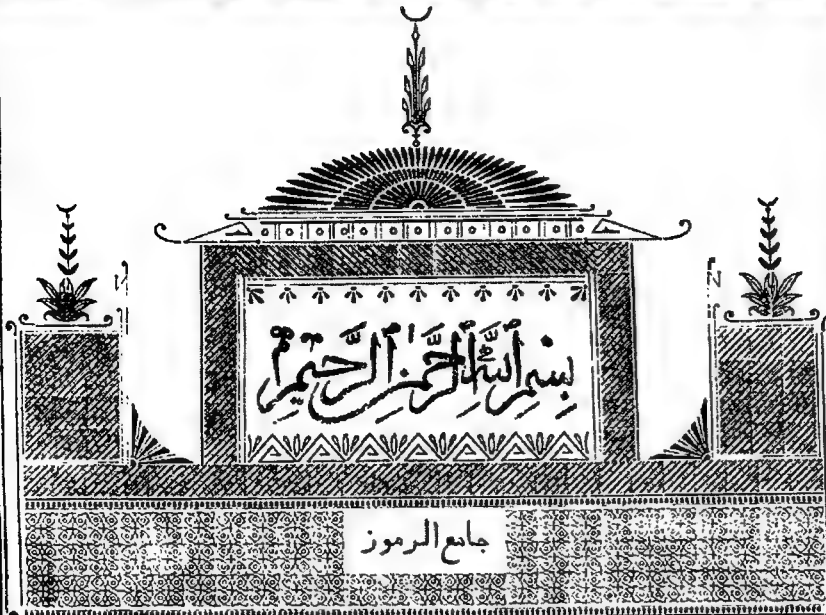 بِسْمِ اللهِ الرَّحْمٰنِ الرَّحِيْمِ
جامع الرموز